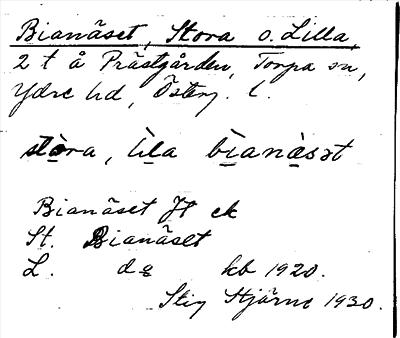 Bianäset, Stora o. Lilla,
2 t å Prästgården, Torpa sn,
Ydre hd, Österg. l.
stòra, lìla bìanä̀sət
Bianäset Jt ek
St. Bianäset
L. d:o kb 1920.
Stig Stjärne 1930.